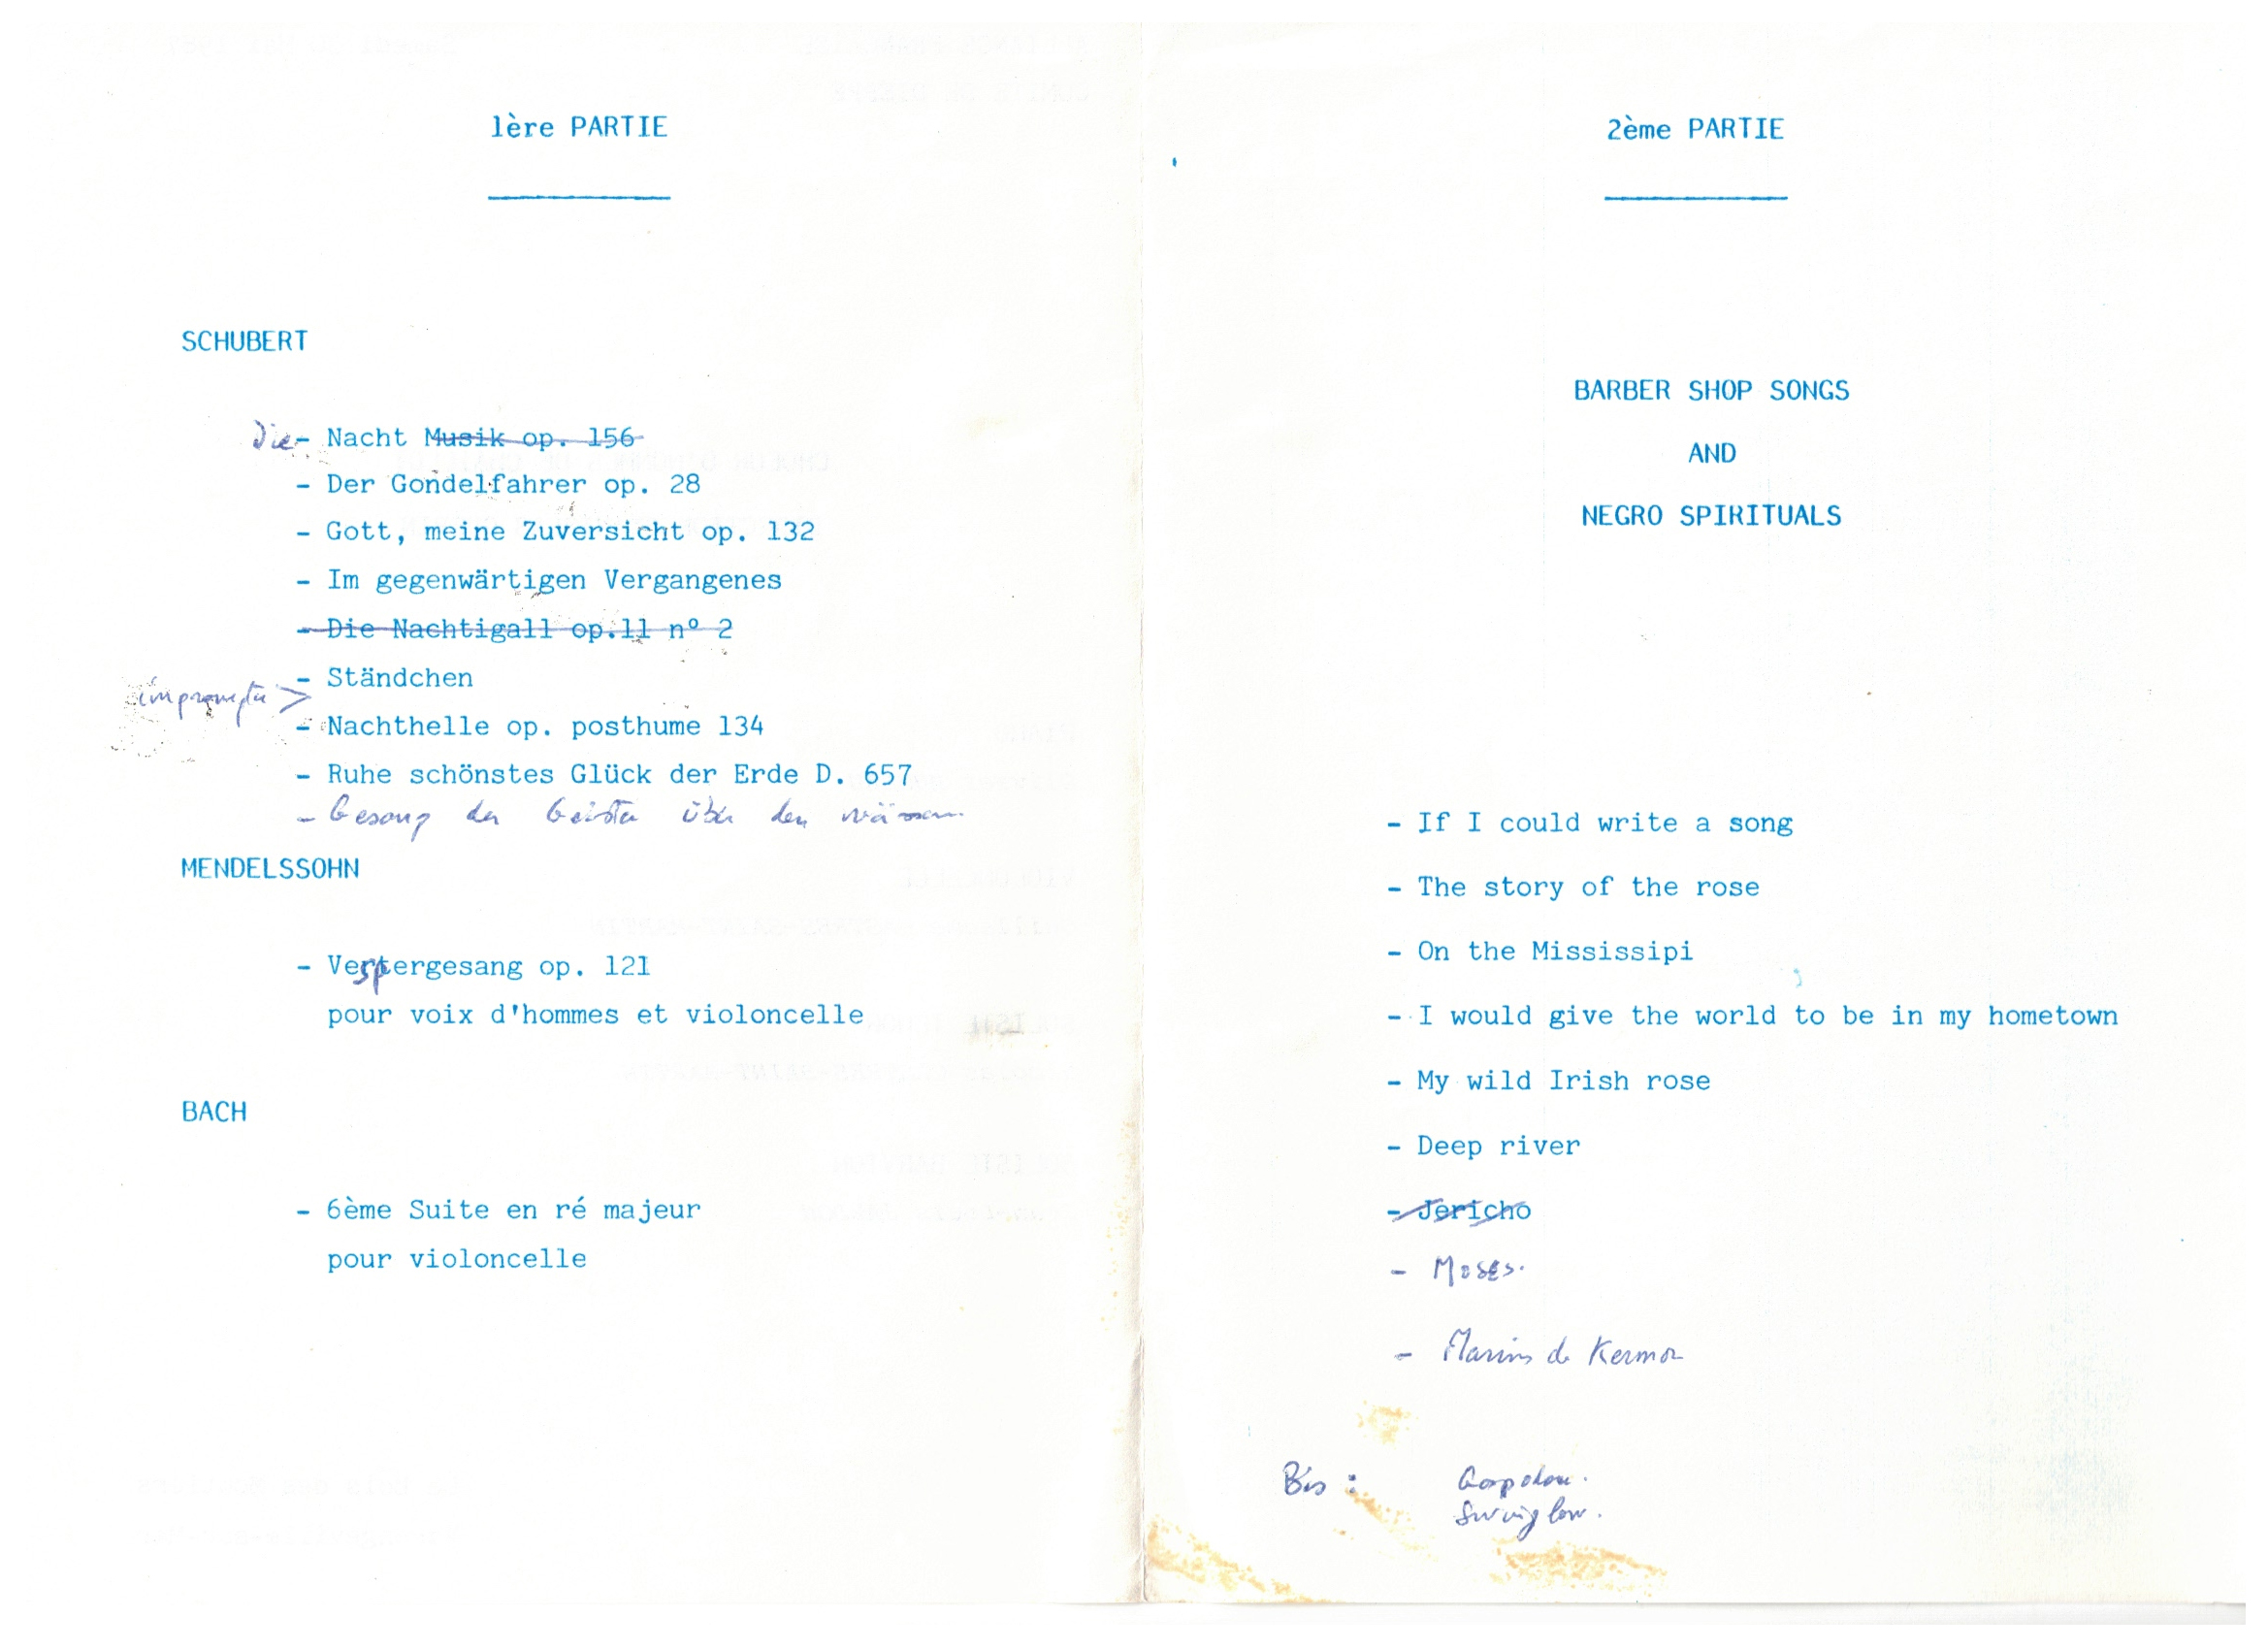 1ère PARTIE
SCHUBERT
Die - Nacht Musik op. 156
- Der Gondelfahrer op. 28
- Gott, meine Zuversicht op. 132
- Im gegenwärtigen Vergangenes
- Die Nachtigall op.11 n° 2
- Ständchen
impromptu >
- Nachthelle op. posthume 134
- Ruhe schönstes Glück der Erde D. 657
- Gesang der Geister über den wässern
MENDELSSOHN
- Vespergesang op. 121
pour voix d'hommes et violoncelle
BACH
- 6ème Suite en ré majeur
pour violoncelle
2ème PARTIE
BARBER SHOP SONGS
AND
NEGRO SPIRITUALS
- If I could write a song
- The story of the rose
- On the Mississipi
- I would give the world to be in my hometown
- My wild Irish rose
- Deep river
- Jericho
- Moses.
- Marins de Kermor
Bis :
Swing low.